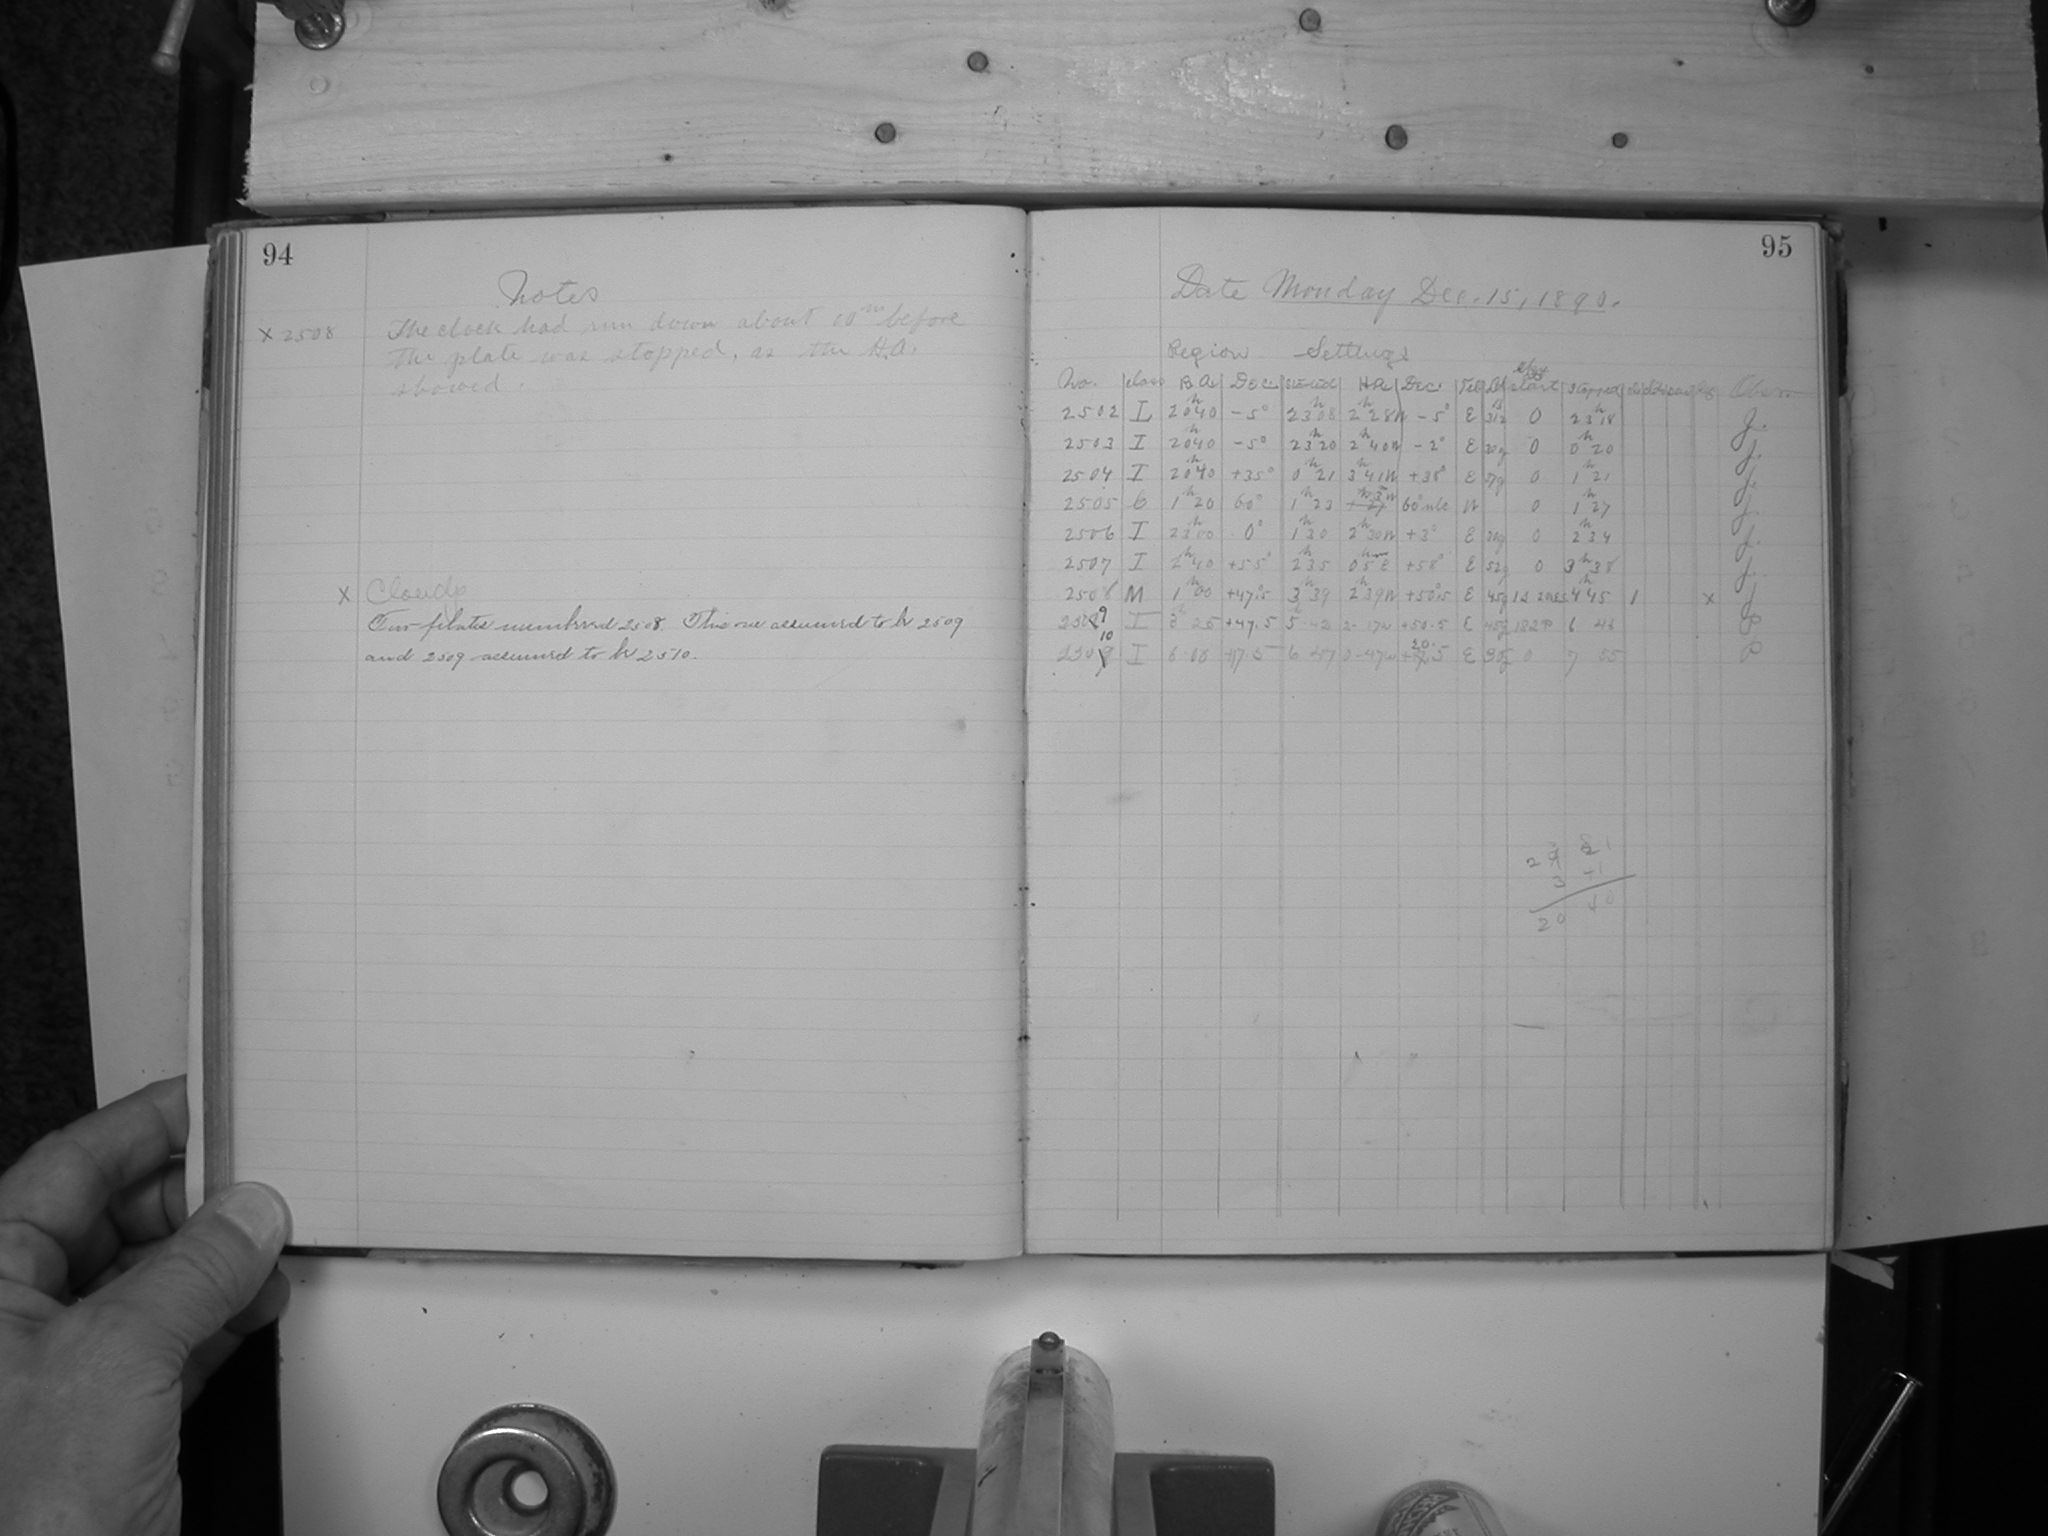 94
Notes
x 2508 The clock had run down about 10m before
the plate was stopped, as the H.A.
showed.
x Clouds
Two plates numbered 2508. This one assumed to be 2509
and 2509 assumed to be 2510.
95
Date Monday Dec. 15, 1890.
Region Settings
No. Class R.A. Dec. Started H.A. Dec. Start Stopped
2502 I 20h40 -5° 23h08 2h28W -5° E 0 23h18 J.
2503 I 20h40 -5° 23h20 2h40W -2° E 0 0h20 J.
2504 I 20h40 +35° 0h21 3h41W +38° E 0 1h21 J.
2505 1h20 60° 1h23 60° W 0 1h27 J.
2506 I 23h00 0° 1h30 2h30W +3° E 0 2h34 J.
2507 I 2h40 +55° 2h35 0 5m E +58° E 0 3h38 J.
2508 M 1h00 +47.5 3h39 2h39W +50.5 E 4h45 1 x J
2509 I 3h25 +47.5 5 42 2 17W +50.5 E 6 P
2510 I 6 00 6 47 0 47W E 0 7 55 P
21
3 41
20 40